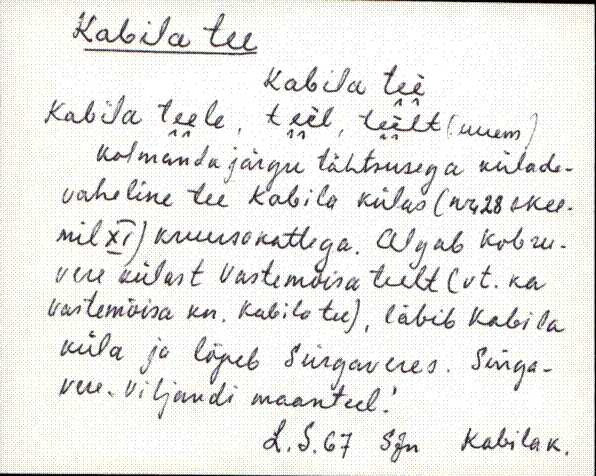 Kabila tee
Kabila teè
Kabila teele, teèl, teèlt (uuem)
kolmanda järgu tähtsusega külade-
vaheline tee Kabila külas (nr. 28 skee-
mil XI) kruusakattega. Algab Kobru-
vere külast Vastemõisa teelt (vt. ka
Vastemõisa kn. Kabila tee), läbib Kabila
küla ja lõpeb Sürgaveres. Sürga-
vere-Viljandi maanteel.
L.S. 67 SJn Kabila k.